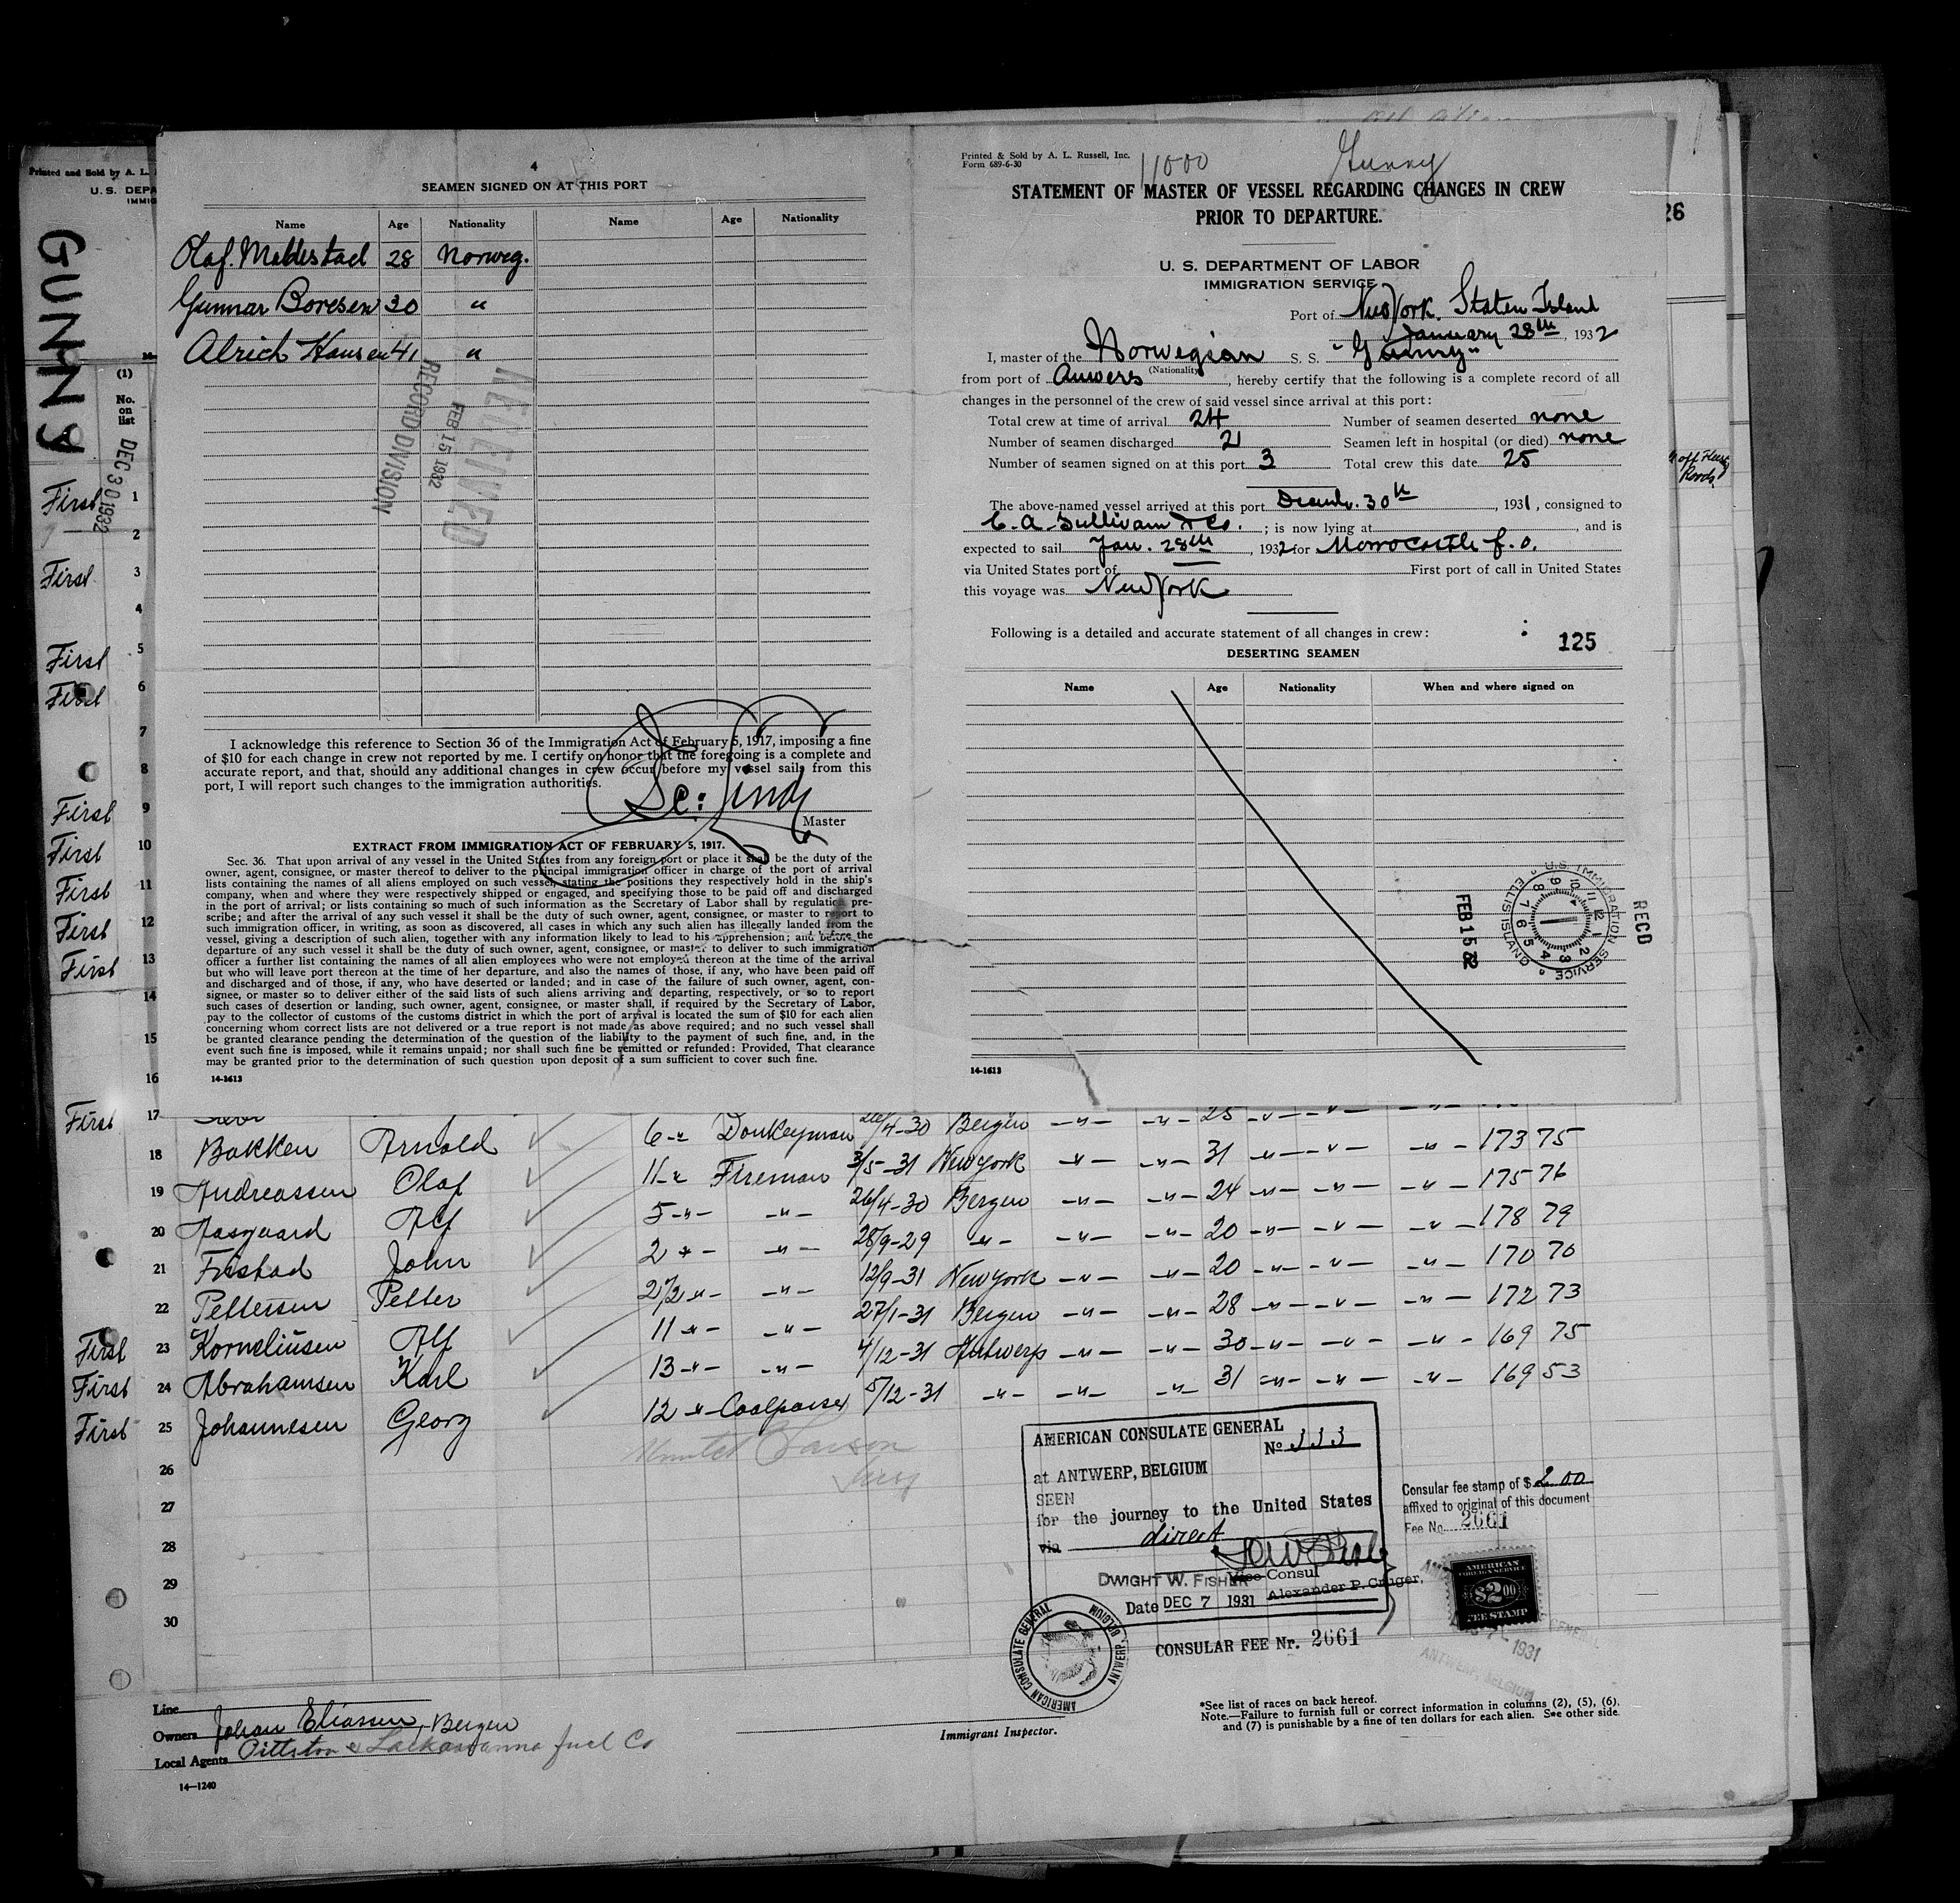 Printed and Sold by A. L.
U. S. DEPA
IMMIG
GUNNY
(1)
No.
on
list
DEC 30 1932
First 1
2
First 3
4
First 5
First 6
7
8
First 9
First 10
First 11
First 12
First 13
14
15
16
First 17
4
SEAMEN SIGNED ON AT THIS PORT
Name Age Nationality Name Age Nationality
Olaf. Meldestad 28 Norweg.
Gunnar Boresen 30 "
Alrich Hansen 41 "
RECEIVED
FEB 15 1932
RECORD DIVISION
I acknowledge this reference to Section 36 of the Immigration Act of February 5, 1917, imposing a fine
of $10 for each change in crew not reported by me. I certify on honor that the foregoing is a complete and
accurate report, and that, should any additional changes in crew occur before my vessel sails from this
port, I will report such changes to the immigration authorities.
Master
EXTRACT FROM IMMIGRATION ACT OF FEBRUARY 5, 1917.
Sec. 36. That upon arrival of any vessel in the United States from any foreign port or place it shall be the duty of the
owner, agent, consignee, or master thereof to deliver to the principal immigration officer in charge of the port of arrival
lists containing the names of all aliens employed on such vessel, stating the positions they respectively hold in the ship's
company, when and where they were respectively shipped or engaged, and specifying those to be paid off and discharged
in the port of arrival; or lists containing so much of such information as the Secretary of Labor shall by regulation pre-
scribe; and after the arrival of any such vessel it shall be the duty of such owner, agent, consignee, or master to report to
such immigration officer, in writing, as soon as discovered, all cases in which any such alien has illegally landed from the
vessel, giving a description of such alien, together with any information likely to lead to his apprehension; and before the
departure of any such vessel it shall be the duty of such owner, agent, consignee, or master to deliver to such immigration
officer a further list containing the names of all alien employees who were not employed thereon at the time of the arrival
but who will leave port thereon at the time of her departure, and also the names of those, if any, who have been paid off
and discharged and of those, if any, who have deserted or landed; and in case of the failure of such owner, agent, con-
signee, or master so to deliver either of the said lists of such aliens arriving and departing, respectively, or so to report
such cases of desertion or landing, such owner, agent, consignee, or master shall, if required by the Secretary of Labor,
pay to the collector of customs of the customs district in which the port of arrival is located the sum of $10 for each alien
concerning whom correct lists are not delivered or a true report is not made as above required; and no such vessel shall
be granted clearance pending the determination of the question of the liability to the payment of such fine, and, in the
event such fine is imposed, while it remains unpaid; nor shall such fine be remitted or refunded: Provided, That clearance
may be granted prior to the determination of such question upon deposit of a sum sufficient to cover such fine.
14-1613
Printed & Sold by A. L. Russell, Inc.
Form 689-6-30
11000 Gunny
STATEMENT OF MASTER OF VESSEL REGARDING CHANGES IN CREW
PRIOR TO DEPARTURE.
26
U. S. DEPARTMENT OF LABOR
IMMIGRATION SERVICE
Port of New York. Staten Island
January 28th, 1932
I, master of the Norwegian S. S. "Gunny"
(Nationality)
from port of Anvers, hereby certify that the following is a complete record of all
changes in the personnel of the crew of said vessel since arrival at this port:
Total crew at time of arrival 24 Number of seamen deserted none
Number of seamen discharged 2 Seamen left in hospital (or died) none
Number of seamen signed on at this port 3 Total crew this date 25
The above-named vessel arrived at this port Decemb. 30th, 1931, consigned to
C. A. Sullivan & Co.; is now lying at , and is
expected to sail Jan. 28th, 1932 for Morrocastle f. o.
via United States port of First port of call in United States
this voyage was New York
Following is a detailed and accurate statement of all changes in crew:
125
DESERTING SEAMEN
Name Age Nationality When and where signed on
U.S. IMMIGRATION SERVICE ELLIS ISLAND
RECD
FEB 15 32
14-1613
6 -"- Donkeyman 26/4-30 Bergen -"- -"- 25 -"- -"- -"-
18 Bakken Arnold 11 -"- Fireman 3/5-31 New York -"- -"- 31 -"- -"- -"- 173 75
19 Andreassen Olaf 5 -"- -"- 26/4-30 Bergen -"- -"- 24 -"- -"- -"- 175 76
20 Aasgaard Alf 2 -"- -"- 28/9-29 -"- -"- -"- 20 -"- -"- -"- 178 79
21 Fristad John 2 1/2 -"- -"- 12/9-31 New York -"- -"- 20 -"- -"- -"- 170 70
22 Pettersen Petter 11 -"- -"- 27/1-31 Bergen -"- -"- 28 -"- -"- -"- 172 73
First 23 Korneliusen Alf 13 -"- -"- 4/12-31 Antwerp -"- -"- 30 -"- -"- -"- 169 75
First 24 Abrahamsen Karl 12 -"- Coalpasser 5/12-31 -"- -"- -"- 31 -"- -"- -"- 169 53
First 25 Johannesen Georg
26
27
28
29
30
AMERICAN CONSULATE GENERAL
No 113
at ANTWERP, BELGIUM
SEEN
for the journey to the United States
via direct
DWIGHT W. FISHER Vice Consul
Alexander P. Cruger,
Date DEC 7 1931
AMERICAN CONSULATE GENERAL ANTWERP, BELGIUM
CONSULAR FEE Nr. 2661
Consular fee stamp of $ 2.00
affixed to original of this document
Fee No. 2661
AMERICAN
FOREIGN SERVICE
$2.00
FEE STAMP
1931
ANTWERP, BELGIUM
Line
Owners Johan Eliassen, Bergen
Local Agents Pittston & Lackawanna fuel Co
14-1240
Immigrant Inspector.
*See list of races on back hereof.
Note.—Failure to furnish full or correct information in columns (2), (5), (6),
and (7) is punishable by a fine of ten dollars for each alien. See other side.